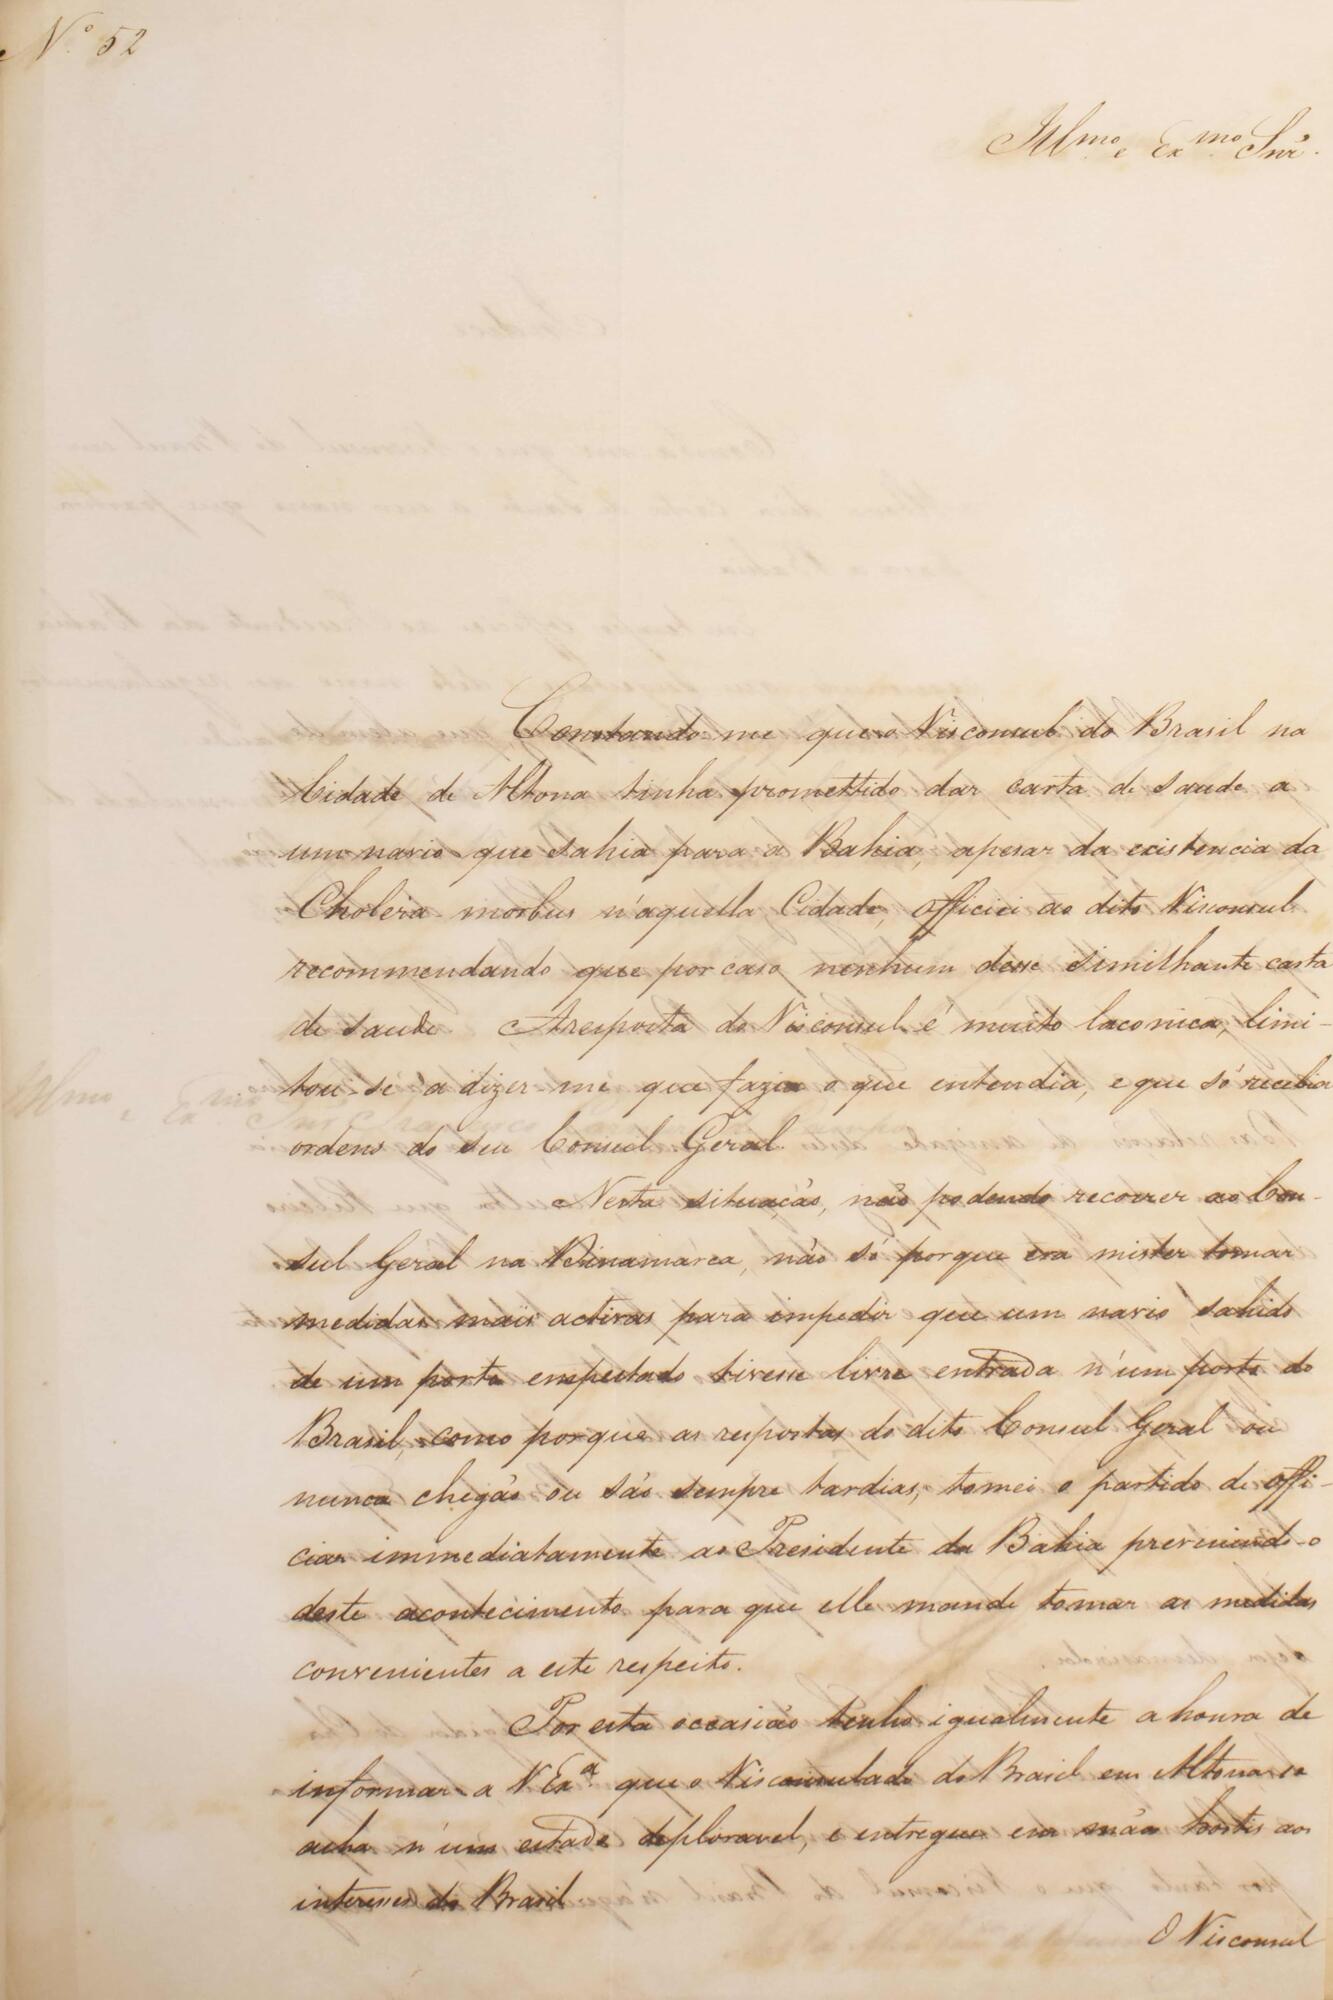 Nº 52
Illmo. e Exmo. Snr.
Constando-me que o Visconsul do Brasil na
Cidade de Altona tinha promettido dar carta de saude a
um navio que sahia para a Bahia, apesar da existencia da
Cholera-morbus n'aquella Cidade, officiei ao dito Visconsul
recommendando que por caso nenhum desse similhante carta
de saude. A resposta do Visconsul é muito laconica, limi-
tou-se a dizer-me que fazia o que entendia, e que só recebia
ordens do seu Consul Geral.
Nesta situação, não podendo recorrer ao Con-
sul Geral na Dinamarca, não só porque era mister tomar
medidas mais activas para impedir que um navio sahido
de um porto empestado tivesse livre entrada n'um porto do
Brasil, como porque as respostas do dito Consul Geral ou
nunca chegão ou são sempre tardias, tomei o partido de offi-
ciar immediatamente ao Presidente da Bahia prevenindo-o
deste acontecimento para que elle mande tomar as medidas
convenientes a este respeito.
Por esta occasião tenho igualmente a honra de
informar a V Exª que o Visconsulado do Brasil em Altona se
acha n'um estado deploravel, e entregue em mãos hostis aos
interesses do Brasil
O Visconsul